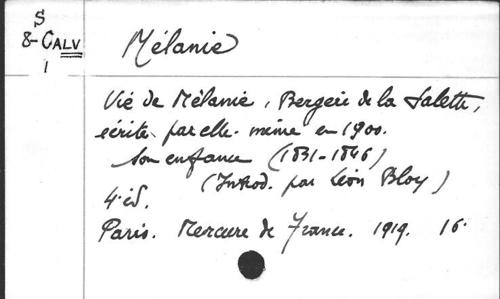 S
8-CALV
1
Mélanie
Vie de Mélanie, Bergère de la Salette,
écrite par elle-même en 1900.
Son enfance (1831-1846)
(Introd. par Léon Bloy)
4e éd.
Paris. Mercure de France. 1919. 16.